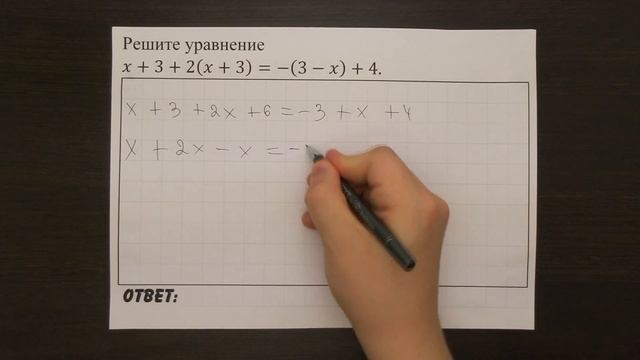 Решите уравнение
x + 3 + 2(x + 3) = −(3 − x) + 4.
x + 3 + 2x + 6 = −3 + x + 4
x + 2x − x = −
ОТВЕТ: